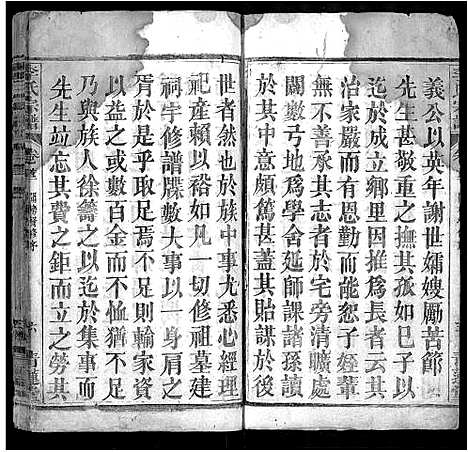 義公以英年謝世孀嫂勵苦節
先生甚敬重之撫其孤子不啻已
迄於成立鄉里咸推為長者云其
治家嚴而有恩勤而能恕子姪輩
無不善承其志於宅旁清曠處
闢數弓地為學舍延師課諸孫讀
書之意頗篤甚蓋其貽謀於後
世者然也於族中事尤悉心經理
祀產賴如見一切修祖墓建
祠宇修譜牒數大端以一身肩之
胥於是乎取足焉不足則輸家資
以益之或數百金而不恤猶或
乃與族人徐籌之以迄集事而
先生竝忘其費之鉅而立之勞其
李氏宗譜
卷首
青蓮堂